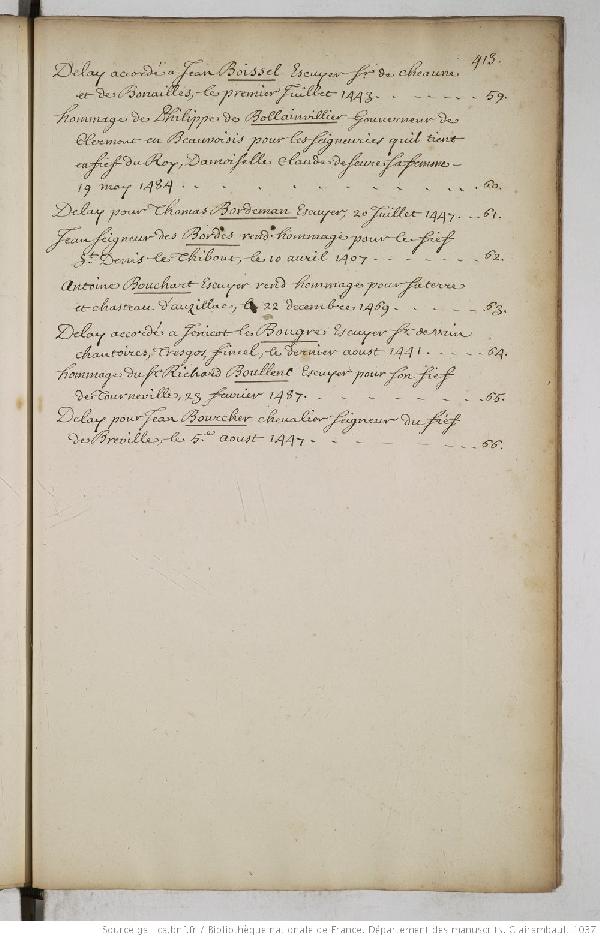 413.
Delay accordé a Jean Boissel Escuyer Sr. de cheaune
et de Bonailles, le premier Juillet 1443. - - - - - - 59.
hommage de Philippe de Bollainvillier Gouverneur de
Clermont en Beauvoisis pour les seigneuries qu'il tient
en fief du Roy, Damoiselle Claude de sa femme -
19 may 1484 . - - - - - - - - 60.
Delay pour Thomas Bordeman Escuyer, 20 Juillet 1447. - . 61.
Jean Seigneur des Bordes rend hommage pour le fief
St. Denis le Thibout, le 10 avril 1407 - - - - - - 62.
Antoine Bouchart Escuyer rend hommage pour sa terre
et chasteau d'auzillac, le 22 decembre 1469. - - - - 63.
Delay accordé a Jenicot le Bougre Escuyer Sr.
chantoires, Tresgos, fincel, le dernier aoust 1441. - - - 64.
hommage du Sr. Richard Boullent Escuyer pour son fief
de Tourneville, 23 fevrier 1487. - - - - - - - 65.
Delay pour Jean Bourcher chevalier seigneur du fief
de Breville, le 5.e aoust 1447. - - - - - - - 66.
Source gallica.bnf.fr / Bibliothèque nationale de France. Département des manuscrits. Clairambault 1037